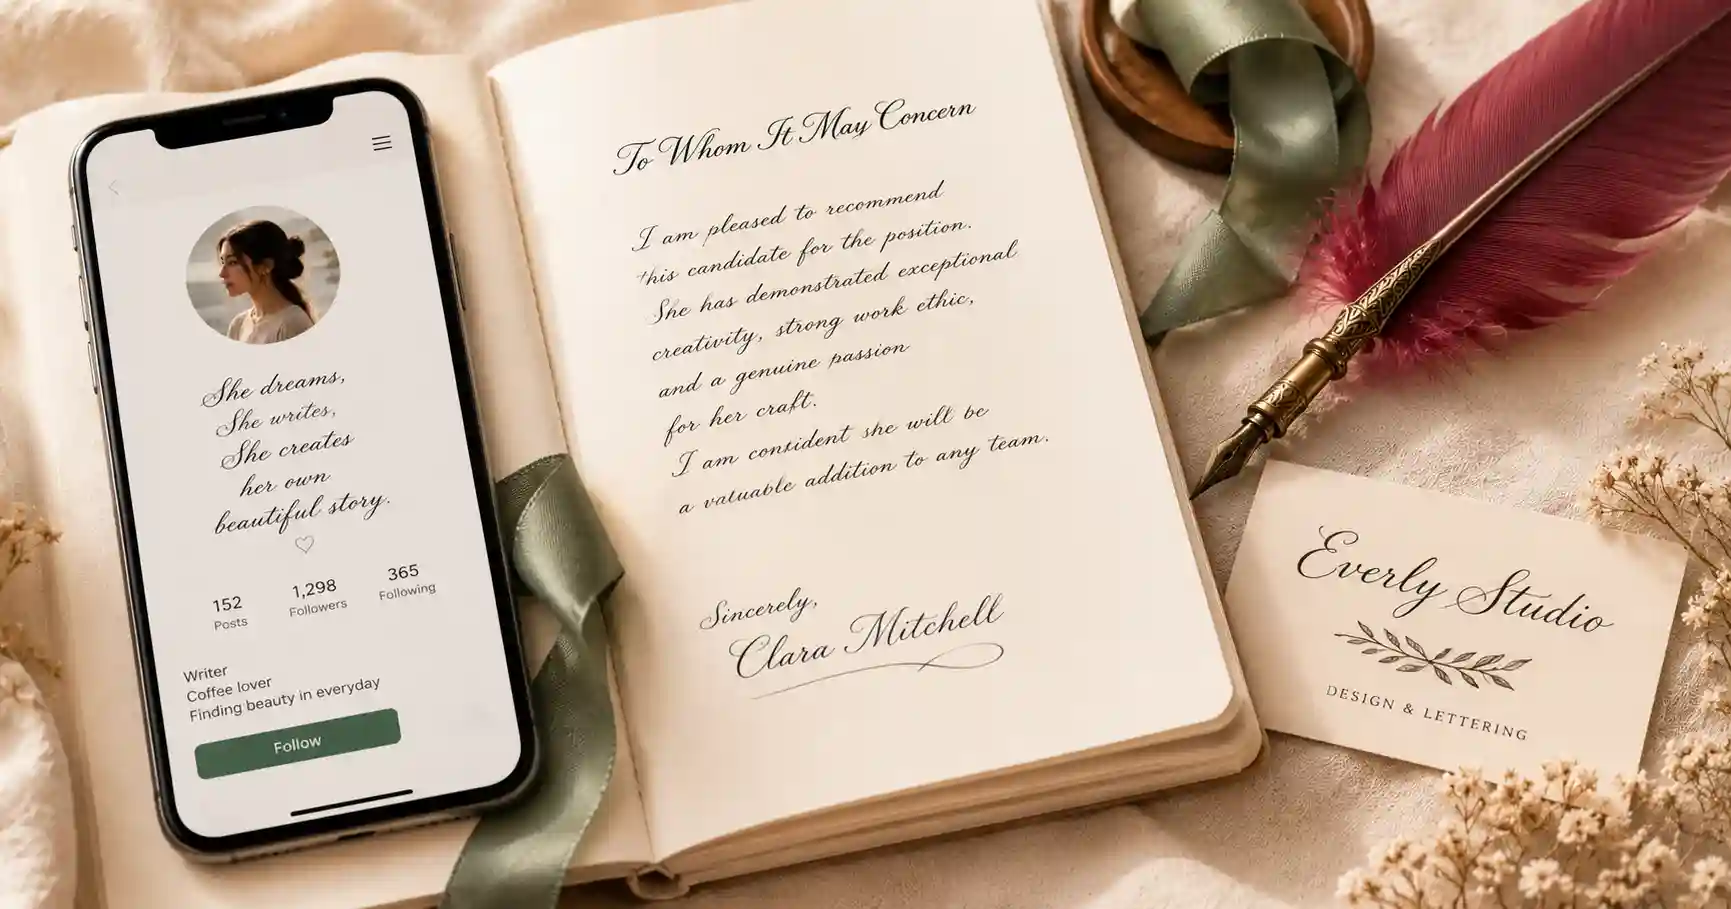 She dreams,
She writes,
She creates
her own
beautiful story.
152
Posts
1,298
Followers
365
Following
Writer
Coffee lover
Finding beauty in everyday
Follow
To Whom It May Concern
I am pleased to recommend
this candidate for the position.
She has demonstrated exceptional
creativity, strong work ethic,
and a genuine passion
for her craft.
I am confident she will be
a valuable addition to any team.
Sincerely,
Clara Mitchell
Everly Studio
DESIGN & LETTERING